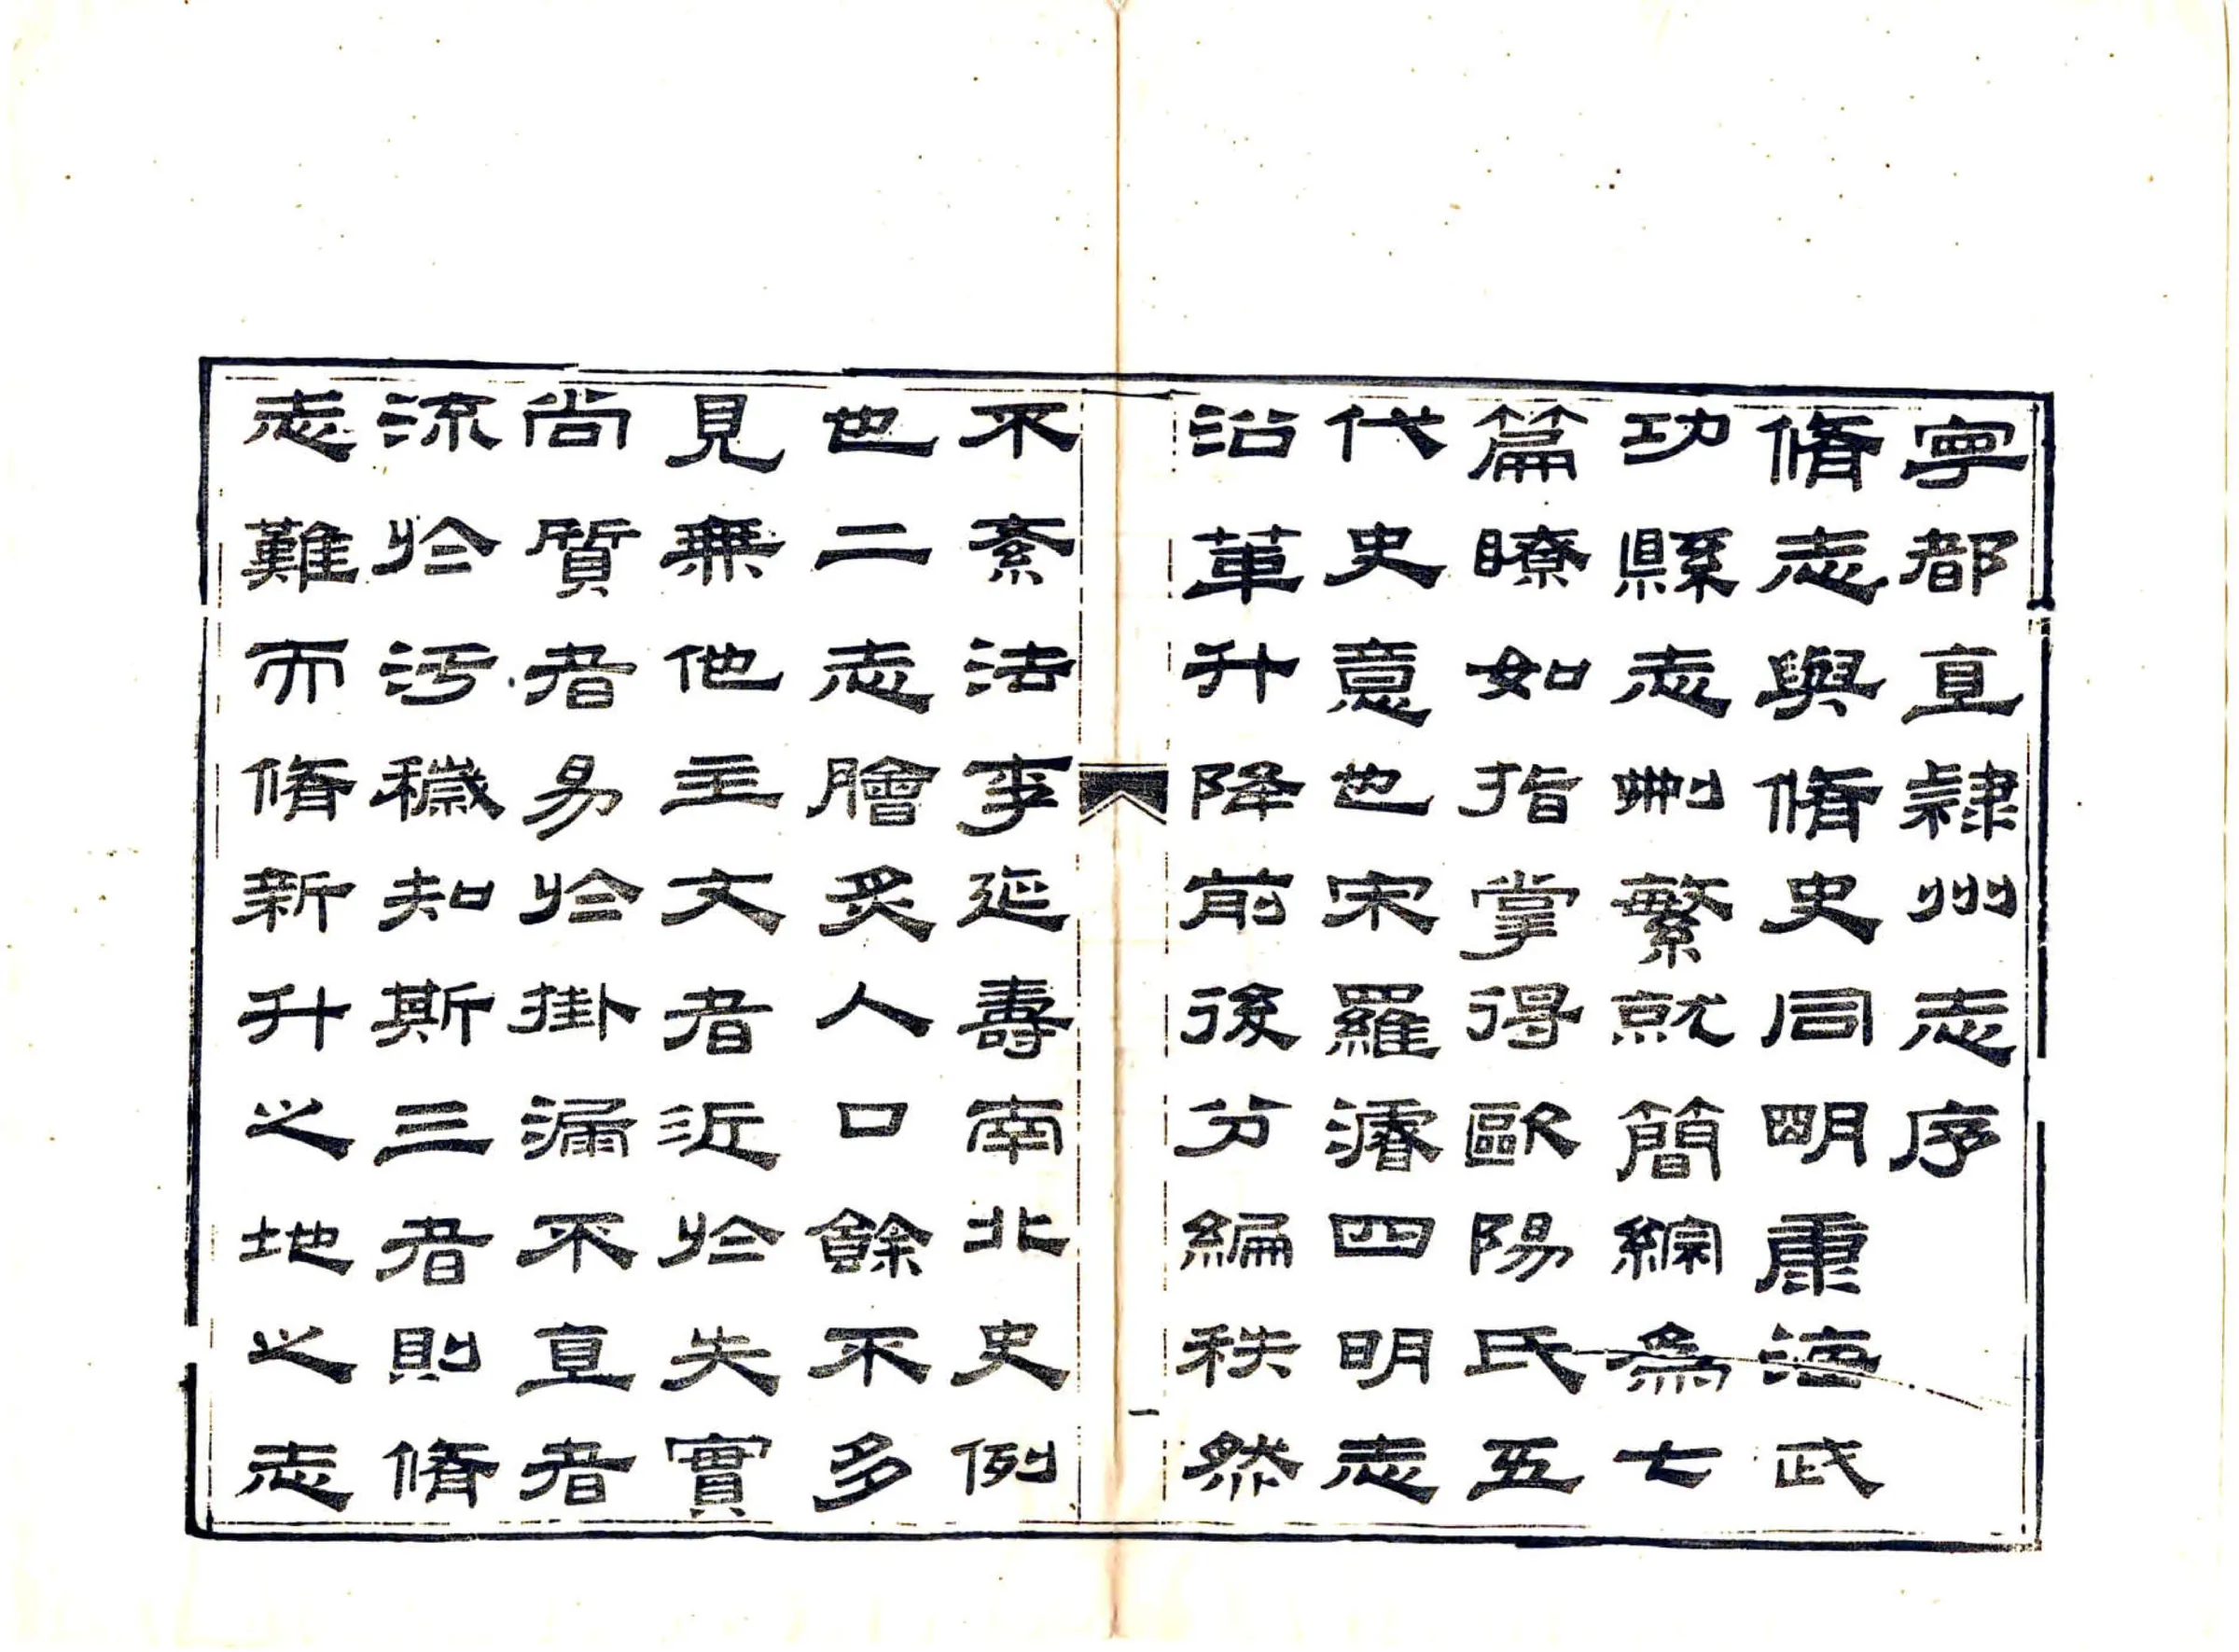 寧都直隷州志序
脩志與脩史同明康海武
功縣志刪繁就簡綜為七
篇瞭如指掌得歐陽氏五
代史意也宋羅濬四明志
沿革升降前後分編秩然
一
不紊法李延壽南北史例
也二志膾炙人口餘不多
見無他主文者近於失實
尚質者易於掛漏不直者
流於污穢知斯三者則脩
志難而脩新升之地之志